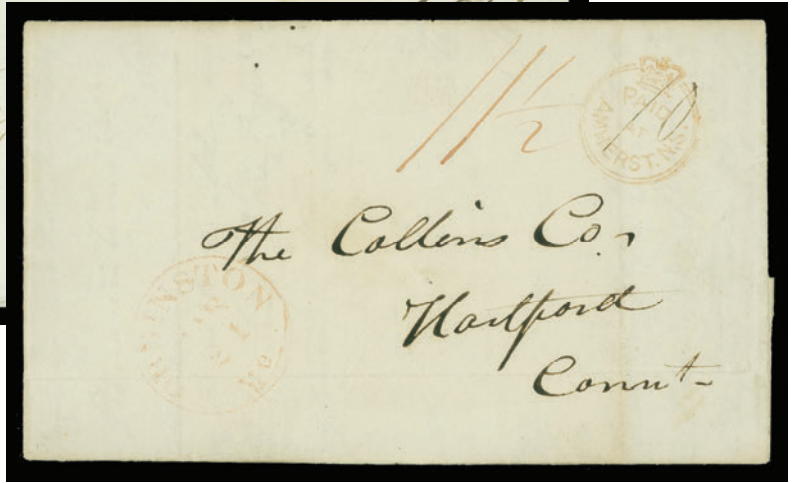 11½
PAID
AT
AMHERST. N.S.
10
The Collins Co.
Hartford
Connt-
ROBBINSTON
Me